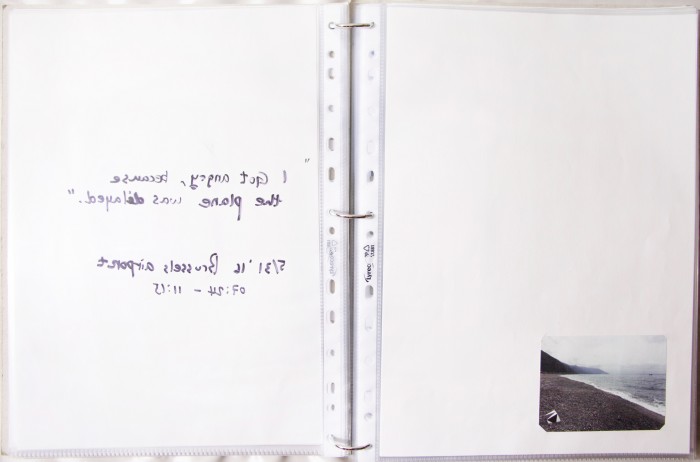 "I got angry, because
the plane was delayed."
5/31 '16 Brussels airport
07:24 – 11:15